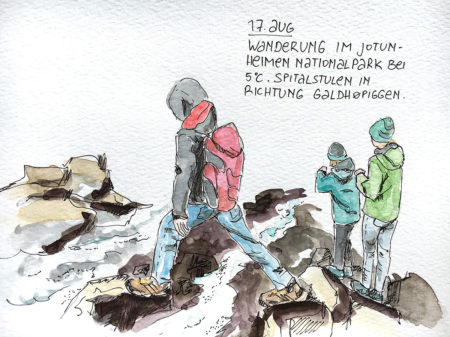 17. AUG
WANDERUNG IM JOTUN-
HEIMEN NATIONALPARK BEI
5°C. SPITALSTULEN IN
RICHTUNG GALDHØPIGGEN.